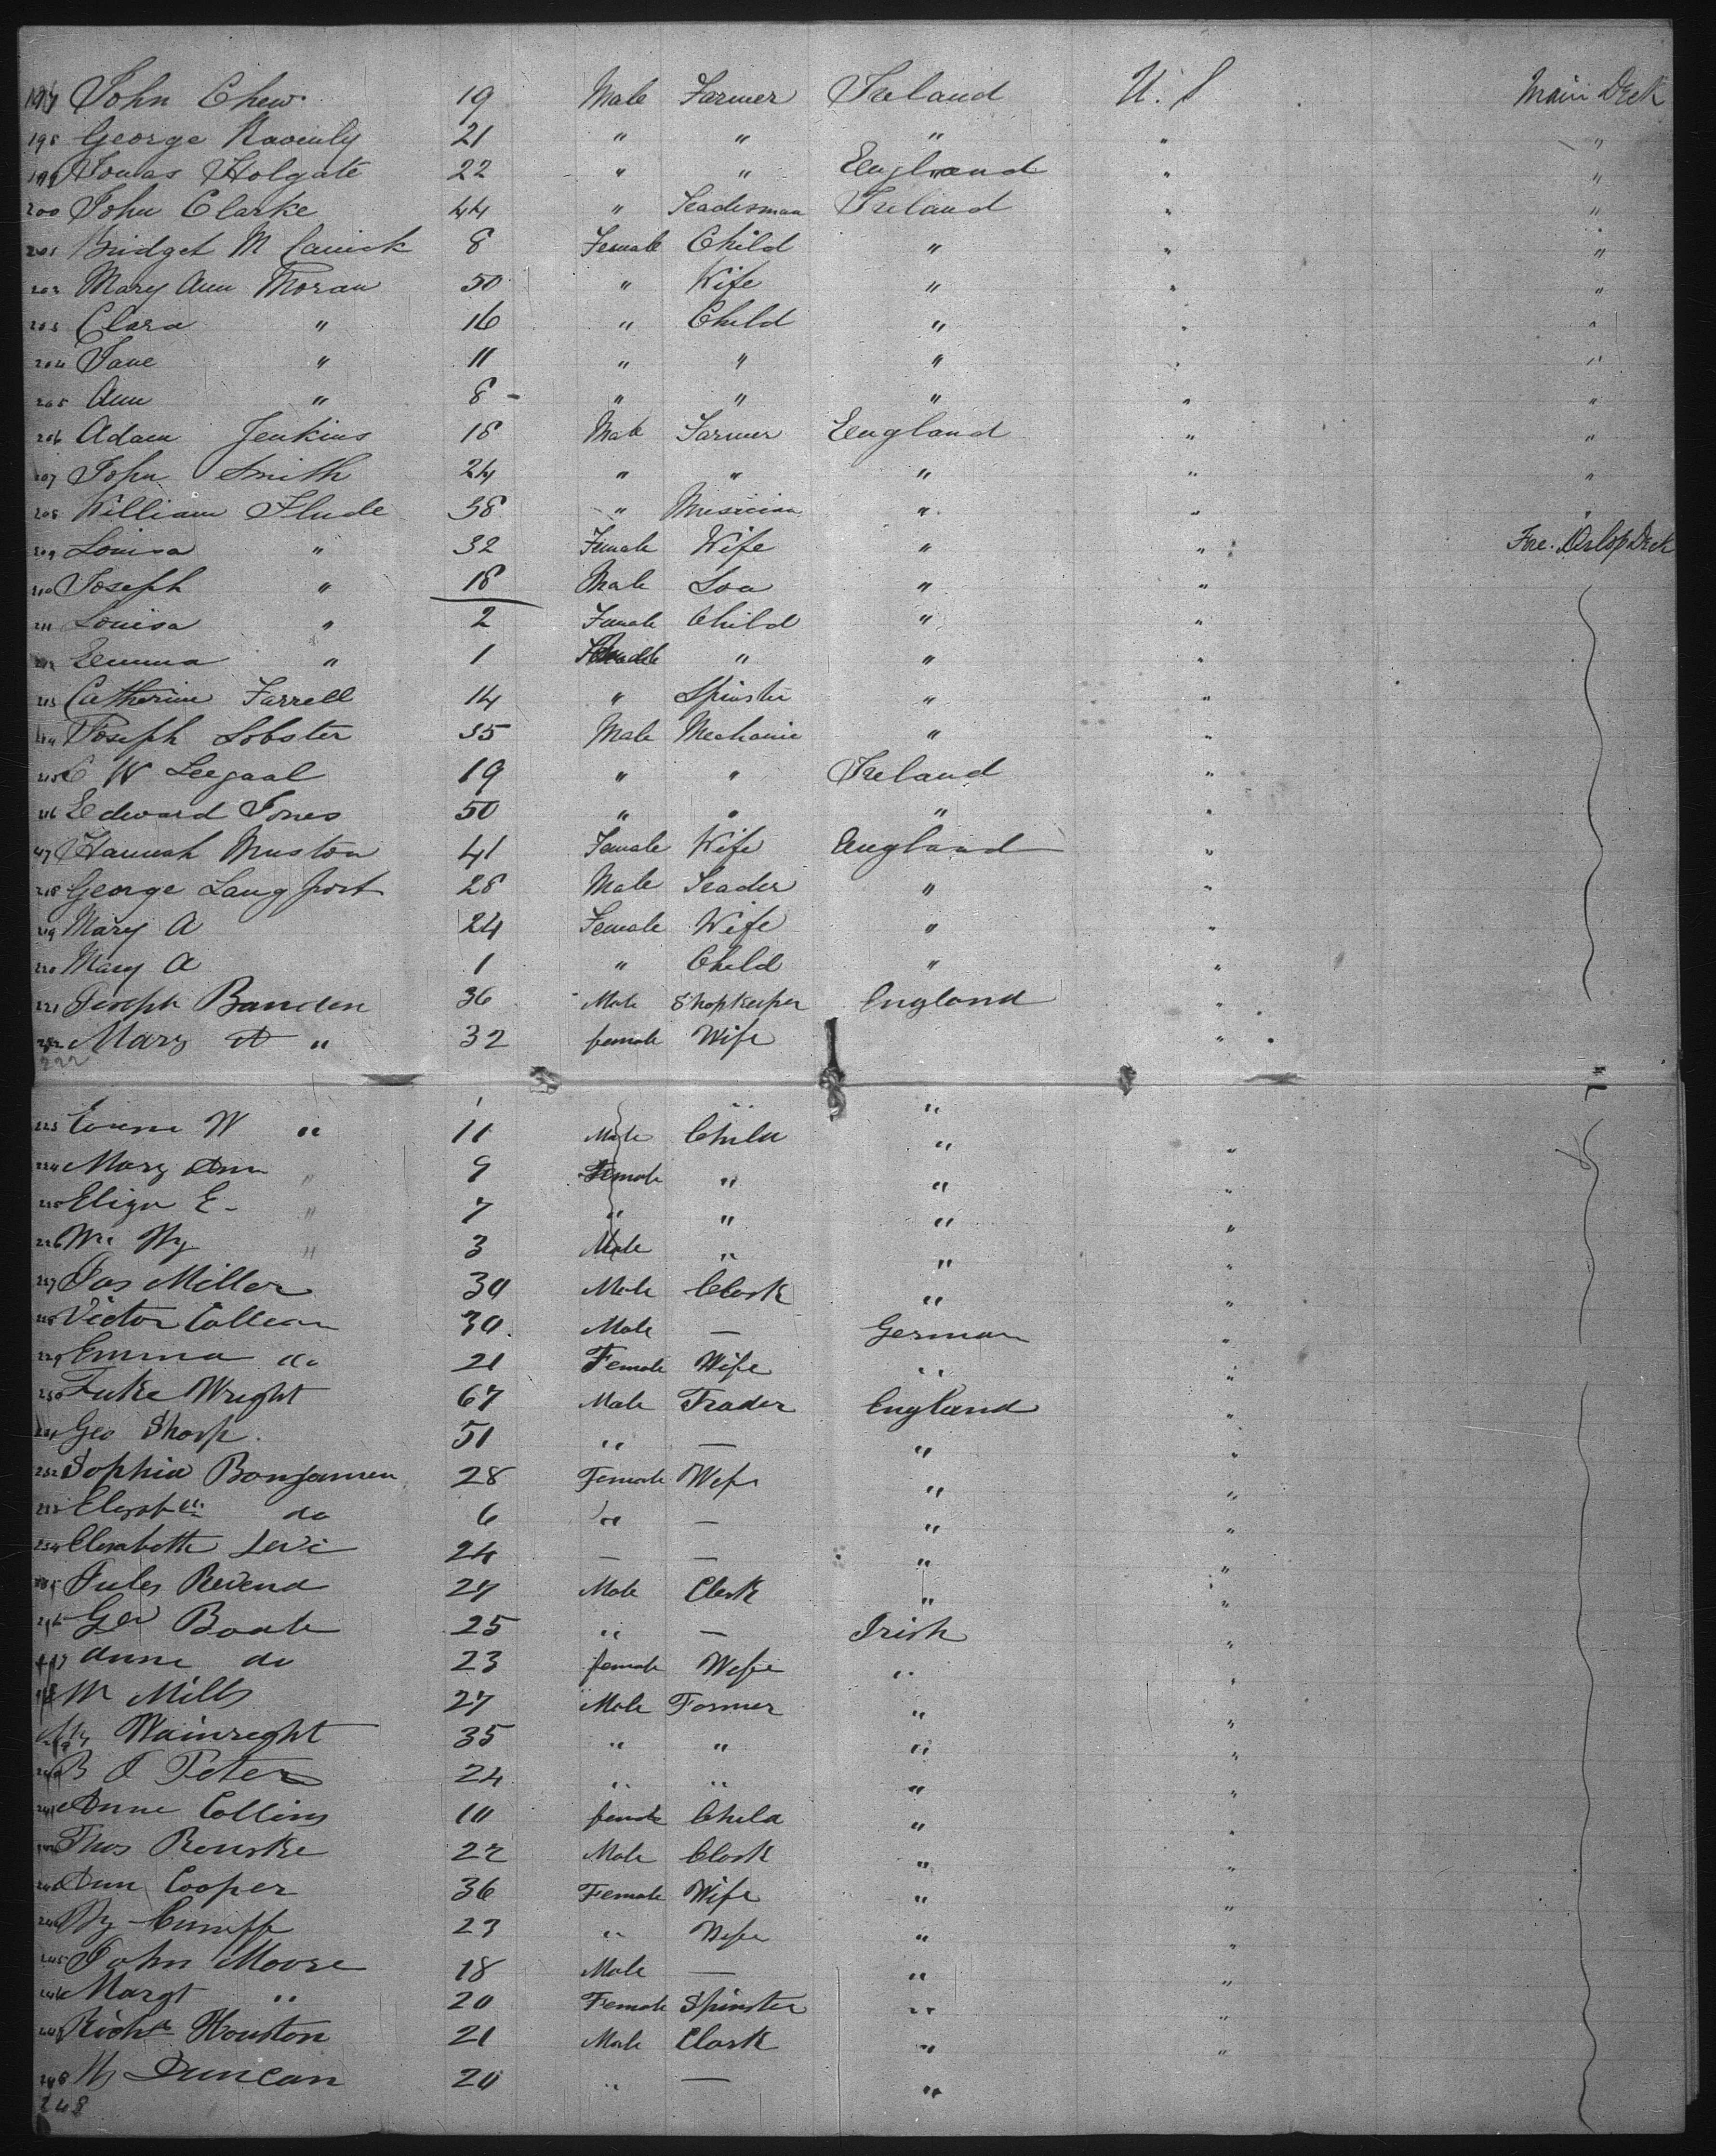 197 John Chew 19 Male Farmer Ireland U. S Main Deck
198 George 21 " " " " "
199 Jonas Holgate 22 " " England " "
200 John Clarke 44 " Tradesman Ireland " "
201 Bridget 8 Female Child " " "
202 Mary Ann Moran 50 " Wife " " "
203 Clara " 16 " Child " " "
204 Jane " 11 " " " " "
205 Ann " 8 - " " " " "
206 Adam Jenkins 18 Male Farmer England " "
207 John Smith 24 " " " " "
208 William Flude 38 " Musician " " "
209 Louisa " 32 Female Wife " " Fore. Orlop Deck
210 Joseph " 18 Male Son " "
211 Louisa " 2 Female Child " "
212 Emma " 1 Female " " "
213 Catherine Farrell 14 " Spinster " "
214 Joseph Lobster 35 Male Mechanic " "
215 C W Leegaal 19 " " Ireland "
216 Edward Jones 50 " " " "
217 Hannah Muston 41 Female Wife England "
218 George Langfort 28 Male Trader " "
219 Mary A 24 Female Wife " "
220 Mary A 1 " Child " "
221 Joseph Banden 36 Male Shopkeeper England "
222 Mary A " 32 female Wife "
222
"
223 W " 11 Male Child " "
224 Mary Ann " 9 Female " " "
225 Eliza E - " 7 " " " "
226 Wm Hy " 3 Male " " "
227 Jas Miller 30 Male Clerk " "
228 Victor 30 Male — German "
229 Emma do 21 Female Wife " "
230 Luke Wright 67 Male Trader England "
231 Geo Sharp. 51 " — " "
232 Sophia Bonjamen 28 Female Wife " "
233 Elizabth do 6 " — " "
234 Elizabeth Levi 24 — — " "
235 Jules Revend 27 Male Clerk " "
236 Geo Boate 25 " — Irish "
237 Anne do 23 female Wife " "
238 M Mills 27 Male Farmer " "
239 Hy Wainright 35 " " " "
240 B J Peters 24 " " " "
241 Anne Collins 10 female Child " "
242 Thos Rourke 22 Male Clerk " "
243 Ann Cooper 36 Female Wife " "
244 Hy 23 " Wife " "
245 John Moore 18 Male — " "
246 Margt " 20 Female Spinster " "
247 Richd Houston 21 Male Clerk " "
248 Hy Duncan 20 " — "
248